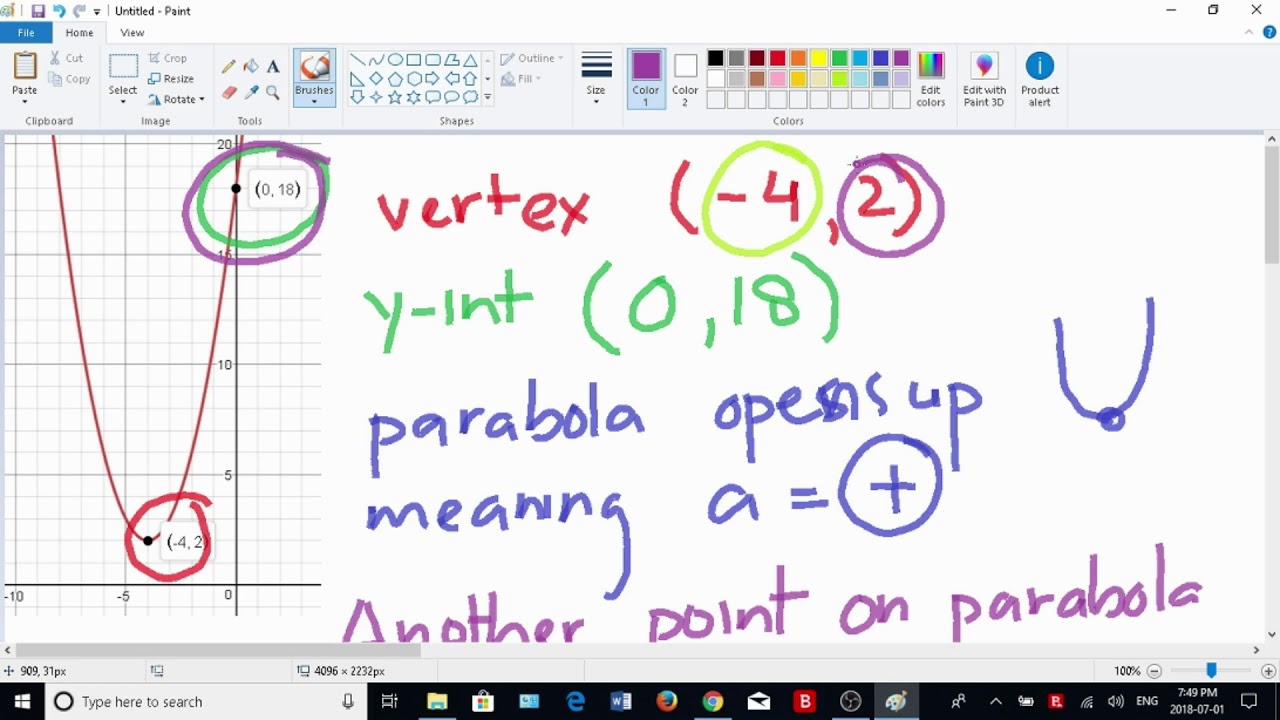 Untitled - Paint
File Home View
Paste
Cut
Copy
Clipboard
Select
Crop
Resize
Rotate
Image
Tools
Brushes
Outline
Fill
Shapes
Size
Color 1
Color 2
Edit colors
Colors
Edit with Paint 3D
Product alert
20
(0, 18)
15
10
5
(-4, 2)
-10 -5 0
vertex (-4,2)
y-int (0,18)
parabola opens up
meaning a = +
Another point on parabola
909, 31px
4096 × 2232px
100%
Type here to search
ENG
7:49 PM
2018-07-01